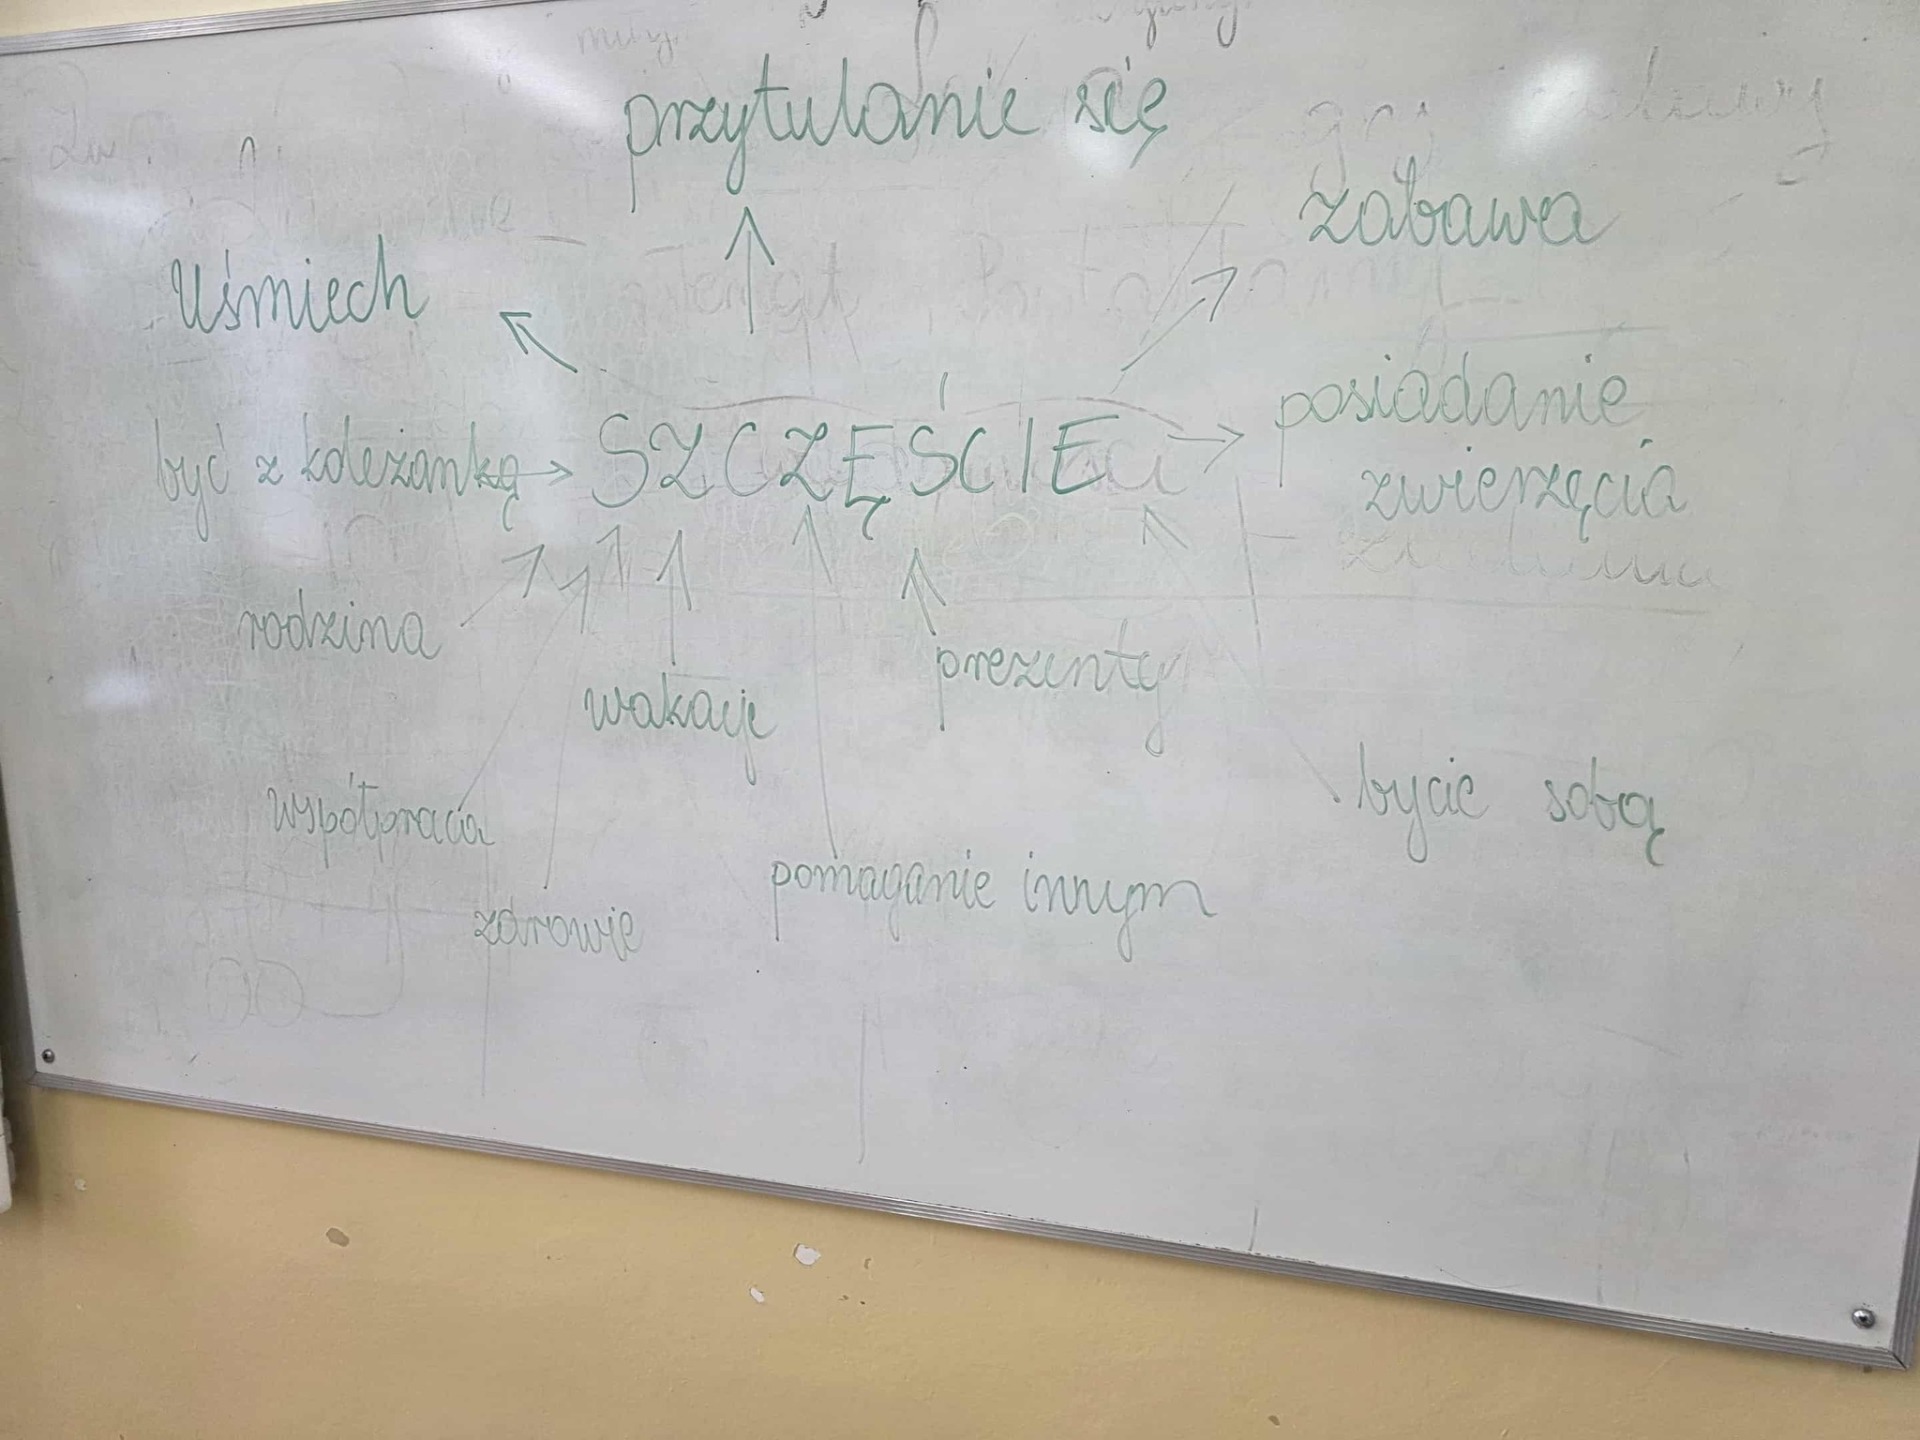 przytulanie się
zabawa
uśmiech
posiadanie
zwierzęcia
być z koleżanką
SZCZĘŚCIE
rodzina
wakacje
prezenty
współpraca
bycie sobą
zdrowie
pomaganie innym